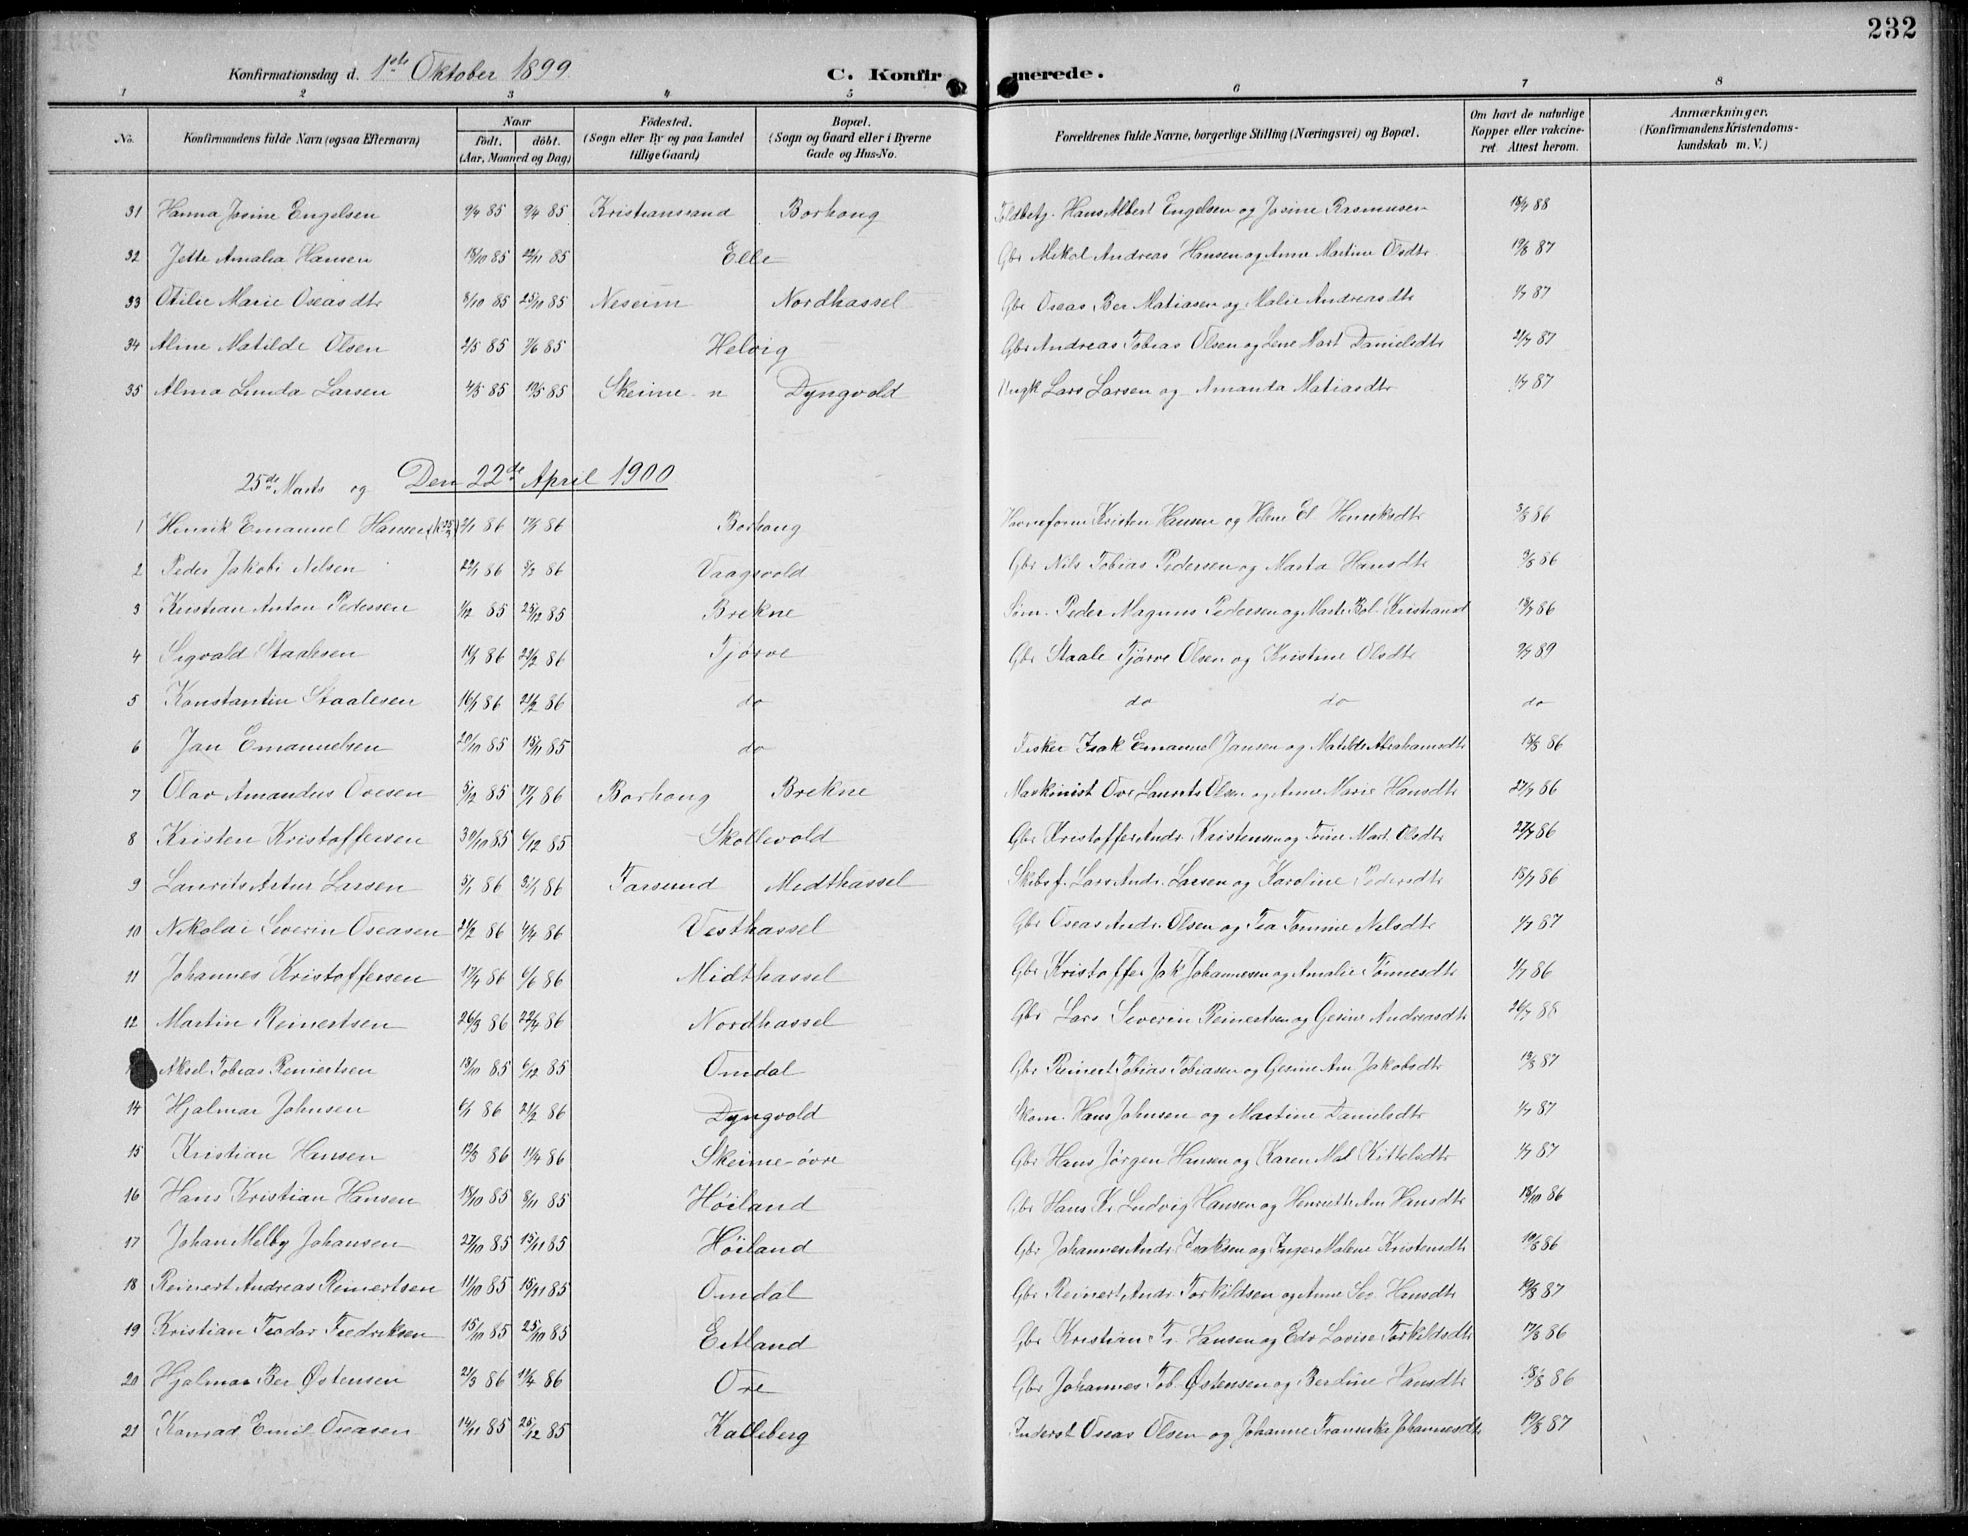 232
Konfirmationsdag d. 1ste Oktober 1899. C. Konfirmerede.
1 2 3 4 5 6 7 8
No. Konfirmandens fulde Navn (ogsaa Efternavn) Naar født. døbt. (Aar, Maaned og Dag) Fødested. (Sogn eller By og paa Landet tillige Gaard) Bopæl. (Sogn og Gaard eller i Byerne Gade og Hus-No. Forældrenes fulde Navne, borgerlige Stilling (Næringsvei) og Bopæl. Om havt de naturlige Kopper eller vakcineret. Attest herom. Anmærkninger. (Konfirmandens Kristendomskundskab m. V.)
31 Hanna Josine Engelsen 85 85 Kristianssand Borhoug Hans Albert Engelsen og Josine Rasmusen 88
32 Jette Amalia Hansen 18/10 85 22/11 85 Elle Gbr Mikal Andreas Hansen og Anne Martine Olsdtr 19/8 87
33 Otilie Marie Oseasdtr 8/10 85 25/10 85 Neseim Nordhassel Gbr Oseas Ber Matiasen og Malie Andreasdtr 1/7 87
34 Aline Matilde Olsen 2/5 85 7/6 85 Helvig Gbr Andreas Tobias Olsen og Lene Mart Danielsdtr 21/7 87
35 Alma Linda Larsen 4/5 85 85 Skeime n Dyngvold Lars Larsen og Amanda Matiasdtr 1/7 87
25de Marts og Den 22de April 1900
1 Henrik Emanuel Hansen 86 86 Borhoug Kristen Hansen og Helene El Henriksdtr 86
2 Peder Jakobi Nilsen 86 86 Vaagsvold Gbr Nils Tobias Pedersen og Marta Hansdtr 86
3 Kristian Anton Pedersen 1/12 85 25/12 85 Brekne Søm. Peder Magnus Pedersen og Marte Bol. Kristiansd 86
4 Sigvald Staalesen 16/1 86 21/2 86 Tjørve Gbr Staale Tjørve Olsen og Kristine Olsdtr 89
5 Konstantin Staalesen 16/1 86 21/2 86 do do do do
6 Jan Emanuelsen 20/10 85 15/11 85 do Fisker Isak Emanuel Jansen og Matilde Abrahamsdtr 18/8 86
7 Olav Amandus Ovesen 5/12 85 17/1 86 Borhoug Brekne Maskinist Ove Laurits Olsen og Anne Marie Hansdtr 27/7 86
8 Kristen Kristoffersen 30/10 85 6/12 85 Skollevold Gbr Kristoffer Andr. Kristensen og Trine Mart. Olsdtr 27/7 86
9 Laurits Artur Larsen 5/1 86 31/1 86 Farsund Midthassel Skibsf. Lars Andr. Larsen og Karoline Pedersdtr 86
10 Nikolai Severin Oseasen 21/2 86 4/4 86 Vesthassel Gbr Oseas Andr. Olsen og Tea Tomine Nilsdtr 1/7 87
11 Johannes Kristoffersen 86 6/6 86 Midthassel Gbr Kristoffer Jak Johannesen og Amalie Tønnesdtr 1/7 86
12 Martin Reinertsen 26/3 86 22/4 86 Nordhassel Gbr Lars Severin Reinertsen og Gesine Andreasdtr
Aksel Tobias Reinertsen 13/10 85 6/12 85 Omdal Gbr Reinert Tobias Tobiasen og Gesine Am Jakobsdtr 87
14 Hjalmar Johnsen 6/1 86 21/2 86 Dyngvold Hans Johnsen og Martine Danielsdtr 1/7 87
15 Kristian Hansen 86 11/4 86 Skeime-øvre Gbr Hans Jørgen Hansen og Karen Mal Kittelsdtr 1/7 87
16 Hans Kristian Hansen 18/10 85 8/11 85 Høiland Gbr Hans Kr Ludvig Hansen og Henriette Am Hansdtr 18/10 86
17 Johan Melby Johansen 27/10 85 15/11 85 Høiland Gbr Johannes Andr. Isaksen og Inger Malene Kristensdtr 86
18 Reinert Andreas Reinertsen 11/10 85 15/11 85 Omdal Gbr Reinert Andr Torkildsen og Anne Ser Hansdtr 87
19 Kristian Teodor Fredriksen 15/10 85 25/10 85 Eitland Gbr Kristian Fr. Hansen og Edv Lovise Torkildsdtr 86
20 Hjalmar Ber Østensen 21/3 86 11/4 86 Ore Gbr Johannes Tob. Østensen og Berdine Hansdtr 18/8 86
21 Konrad Emil Oseasen 85 85 Kalleberg Inderst Oseas Olsen og Johanne Franciska Johannesdtr 87